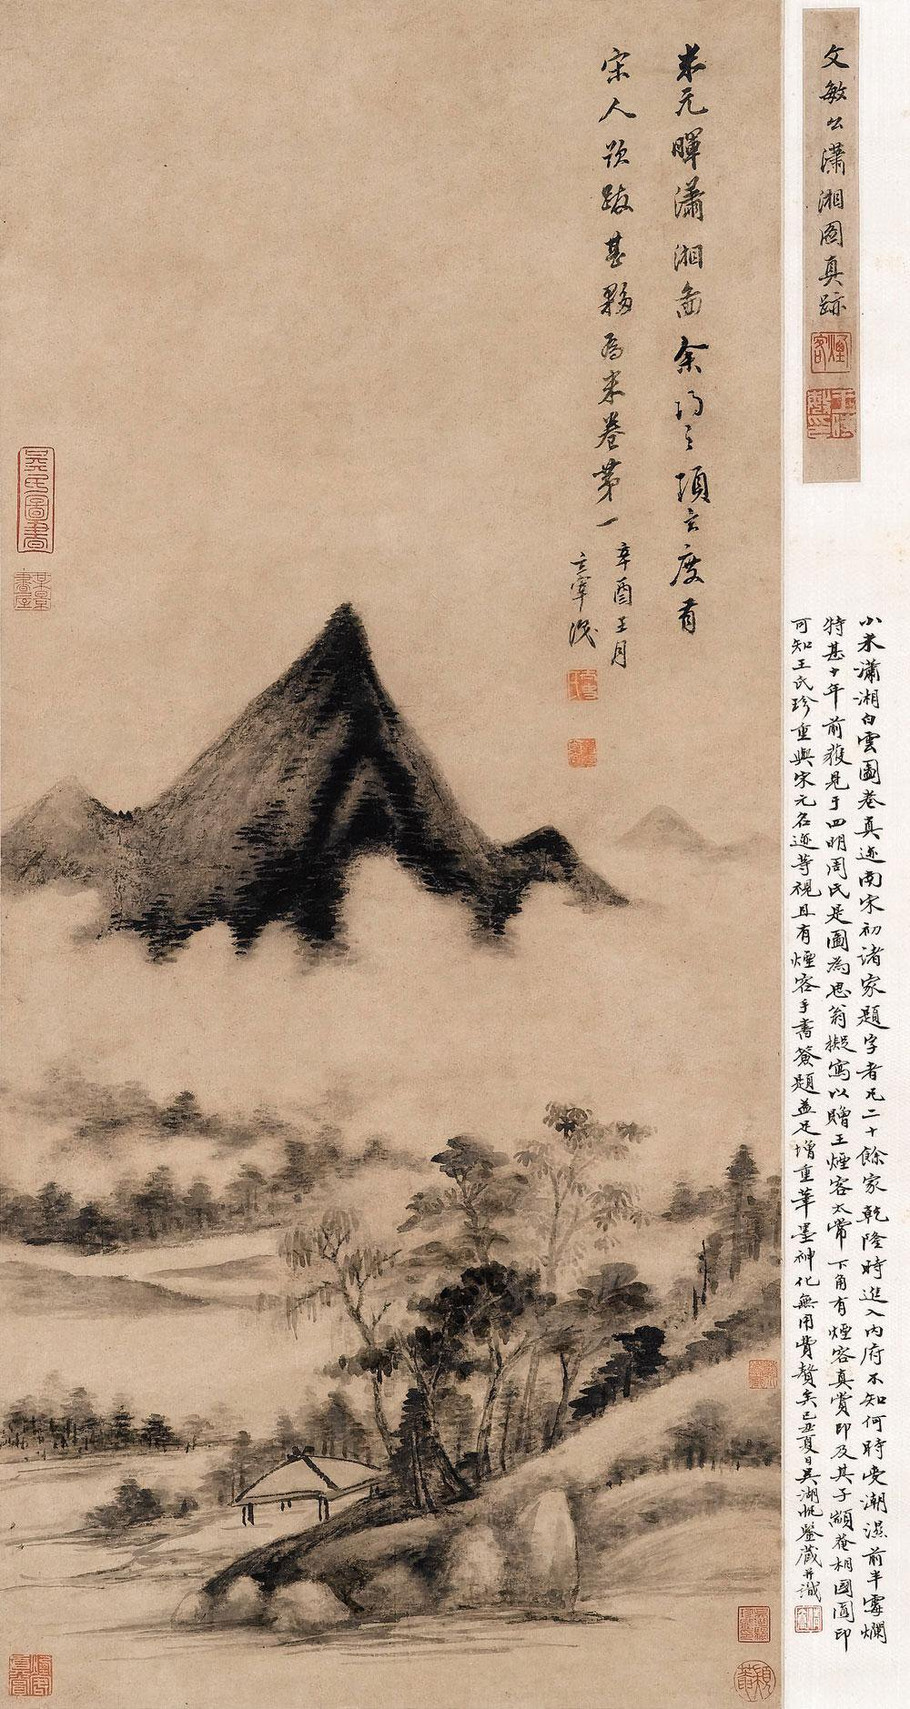 文敏公瀟湘圖真跡
煙客
米元暉瀟湘圖余得之項玄度有
宋人題跋甚夥為米卷第一
辛酉五月
玄宰識
吳氏圖書
某景書屋
小米瀟湘白雲圖卷真迹南宋初諸家題字者凡二十餘家乾隆時進入內府不知何時受潮濕前半霉爛
特甚十年前獲見于四明周氏是圖為思翁擬寫以贈王煙客太常下角有煙客真賞印及其子顓菴相國圓印
可知王氏珍重與宋元名迹等視且有煙客手書籤題益足增重筆墨神化無用費贅矣己丑夏日吳湖帆鑒藏并識
煙客真賞
顓菴